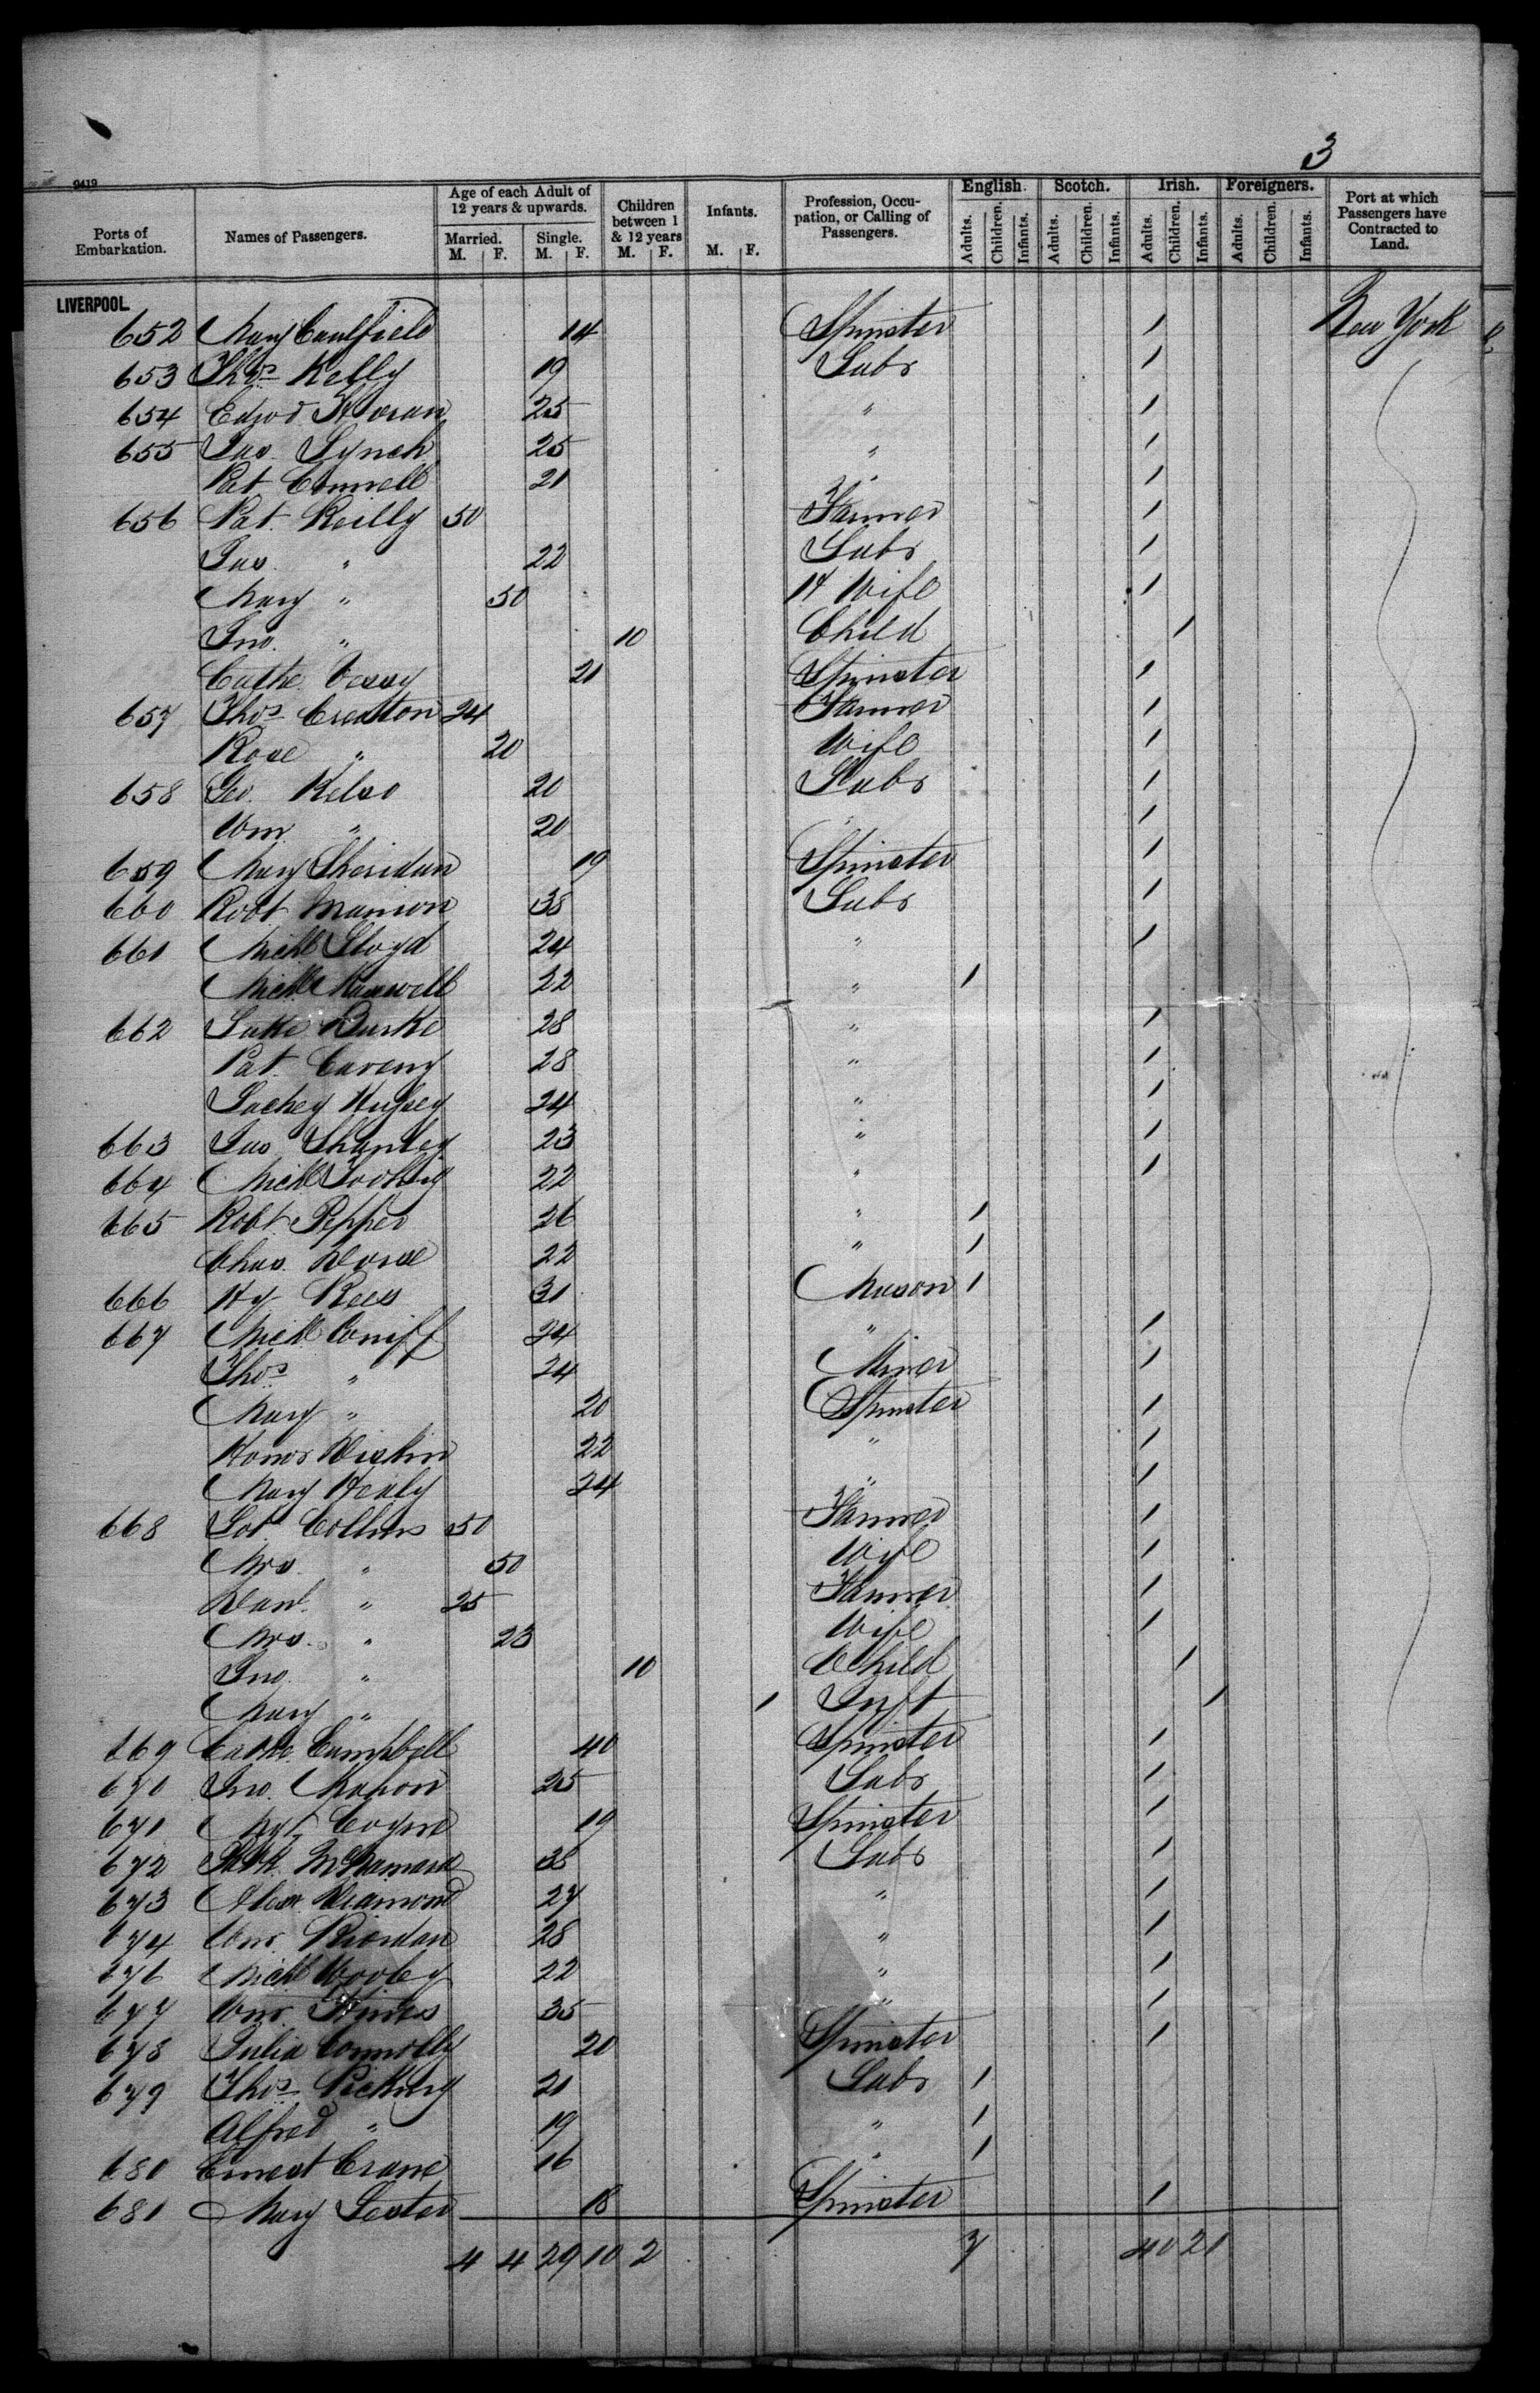 3
2419
Ports of Embarkation. Names of Passengers. Age of each Adult of 12 years & upwards. Married. M. F. Single. M. F. Children between 1 & 12 years M. F. Infants. M. F. Profession, Occupation, or Calling of Passengers. English. Adults. Children. Infants. Scotch. Adults. Children. Infants. Irish. Adults. Children. Infants. Foreigners. Adults. Children. Infants. Port at which Passengers have Contracted to Land.
LIVERPOOL.
652 Mary Caulfield 14 Spinster 1 New York
653 Thos Kelly 19 Labr 1
654 Edwd Horan 25 " 1
655 Jas. Lynch 25 " 1
Pat Connell 21 " 1
656 Pat. Reilly 50 Farmer 1
Jas. " 22 Labr 1
Mary " 50 H Wife 1
Jno. " 10 Child 1
Cathe. 21 Spinster 1
657 Thos Creaton 24 Farmer 1
Rose " 20 Wife 1
658 Geo. Kelso 20 Labr 1
Wm. " 20 " 1
659 Mary Sheridan 19 Spinster 1
660 Robt Manion 38 Labr 1
661 Michl Lloyd 24 " 1
Michl Maxwell 22 " 1
662 Luke Burke 28 " 1
Pat. Caveny 28 " 1
Lackey 24 " 1
663 Jas Shanley 23 " 1
664 Michl 22 " 1
665 Robt. Pepper 26 " 1
Chas. 22 " 1
666 Hy Rees 31 Mason 1
667 Michl Cuniff 24 " 1
Thos " 24 Miner 1
Mary " 20 Spinster 1
Honor Diskin 22 " 1
Mary Healy 24 " 1
668 Collins 50 Farmer 1
Mrs. " 50 Wife 1
Danl. " 25 Farmer 1
Mrs. " 23 Wife 1
Jno. " 10 Child 1
Mary " 1 Inft 1
669 Cathe. Campbell 40 Spinster 1
670 Jno. Mahon 25 Labr 1
671 Mgt Coyne 19 Spinster 1
672 McNamara 38 Labr 1
673 Alexr. Diamond 27 " 1
674 Wm. Riordan 28 " 1
676 Michl Wooley 22 " 1
677 Wm. Hines 35 " 1
678 Julia Connolly 20 Spinster 1
679 Thos Picking 21 Labr 1
Alfred " 19 " 1
680 Ernest Crane 16 " 1
681 Mary Lester 18 Spinster 1
4 4 29 10 2 7 40 2 1